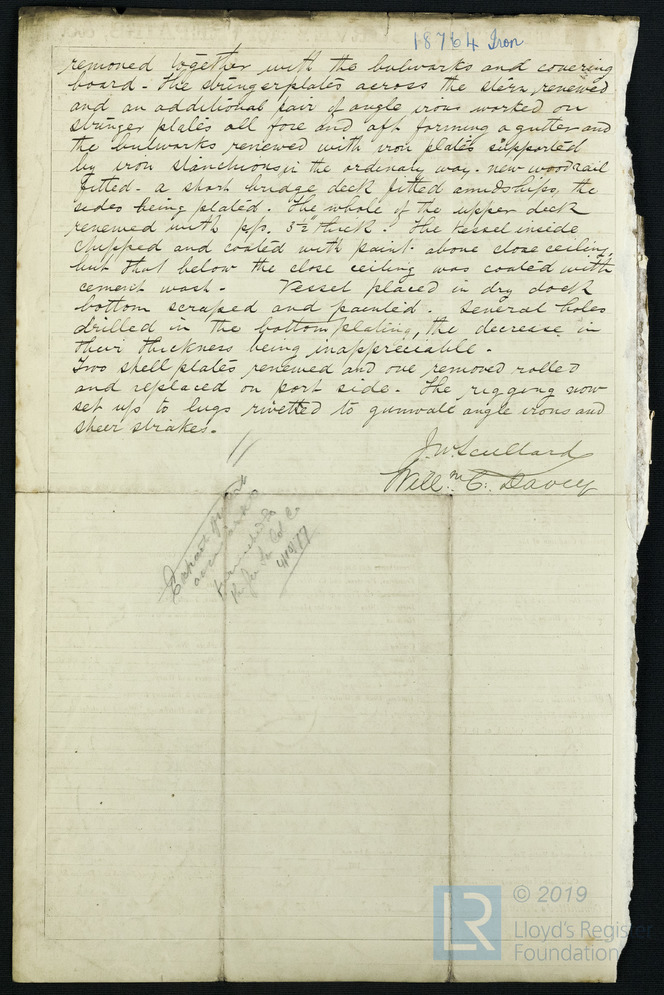 18764 Iron
removed together with the bulwarks and covering
board - The stringerplates across the stern renewed
and an additional pair of angle irons worked on
stringer plates all fore and aft forming a gutter and
the bulwarks renewed with iron plates supported
by iron stanchions in the ordinary way. new woodrail
fitted - a short bridge deck fitted amidships, the
sides being plated. The whole of the upper deck
renewed with p.p. 3½" thick. The vessel inside
chipped and coated with paint above close ceiling,
but that below the close ceiling was coated with
cement wash - Vessel placed in dry dock
bottom scraped and painted. Several holes
drilled in the bottom plating, the decrease in
their thickness being inappreciable.
Two shell plates renewed and one removed rolled
and replaced on port side. The rigging now
set up to lugs rivetted to gunwale angle irons and
sheer strakes.
J. W. Scullard
Will.m C. Davey
© 2019
LR
Lloyd's Register
Foundation